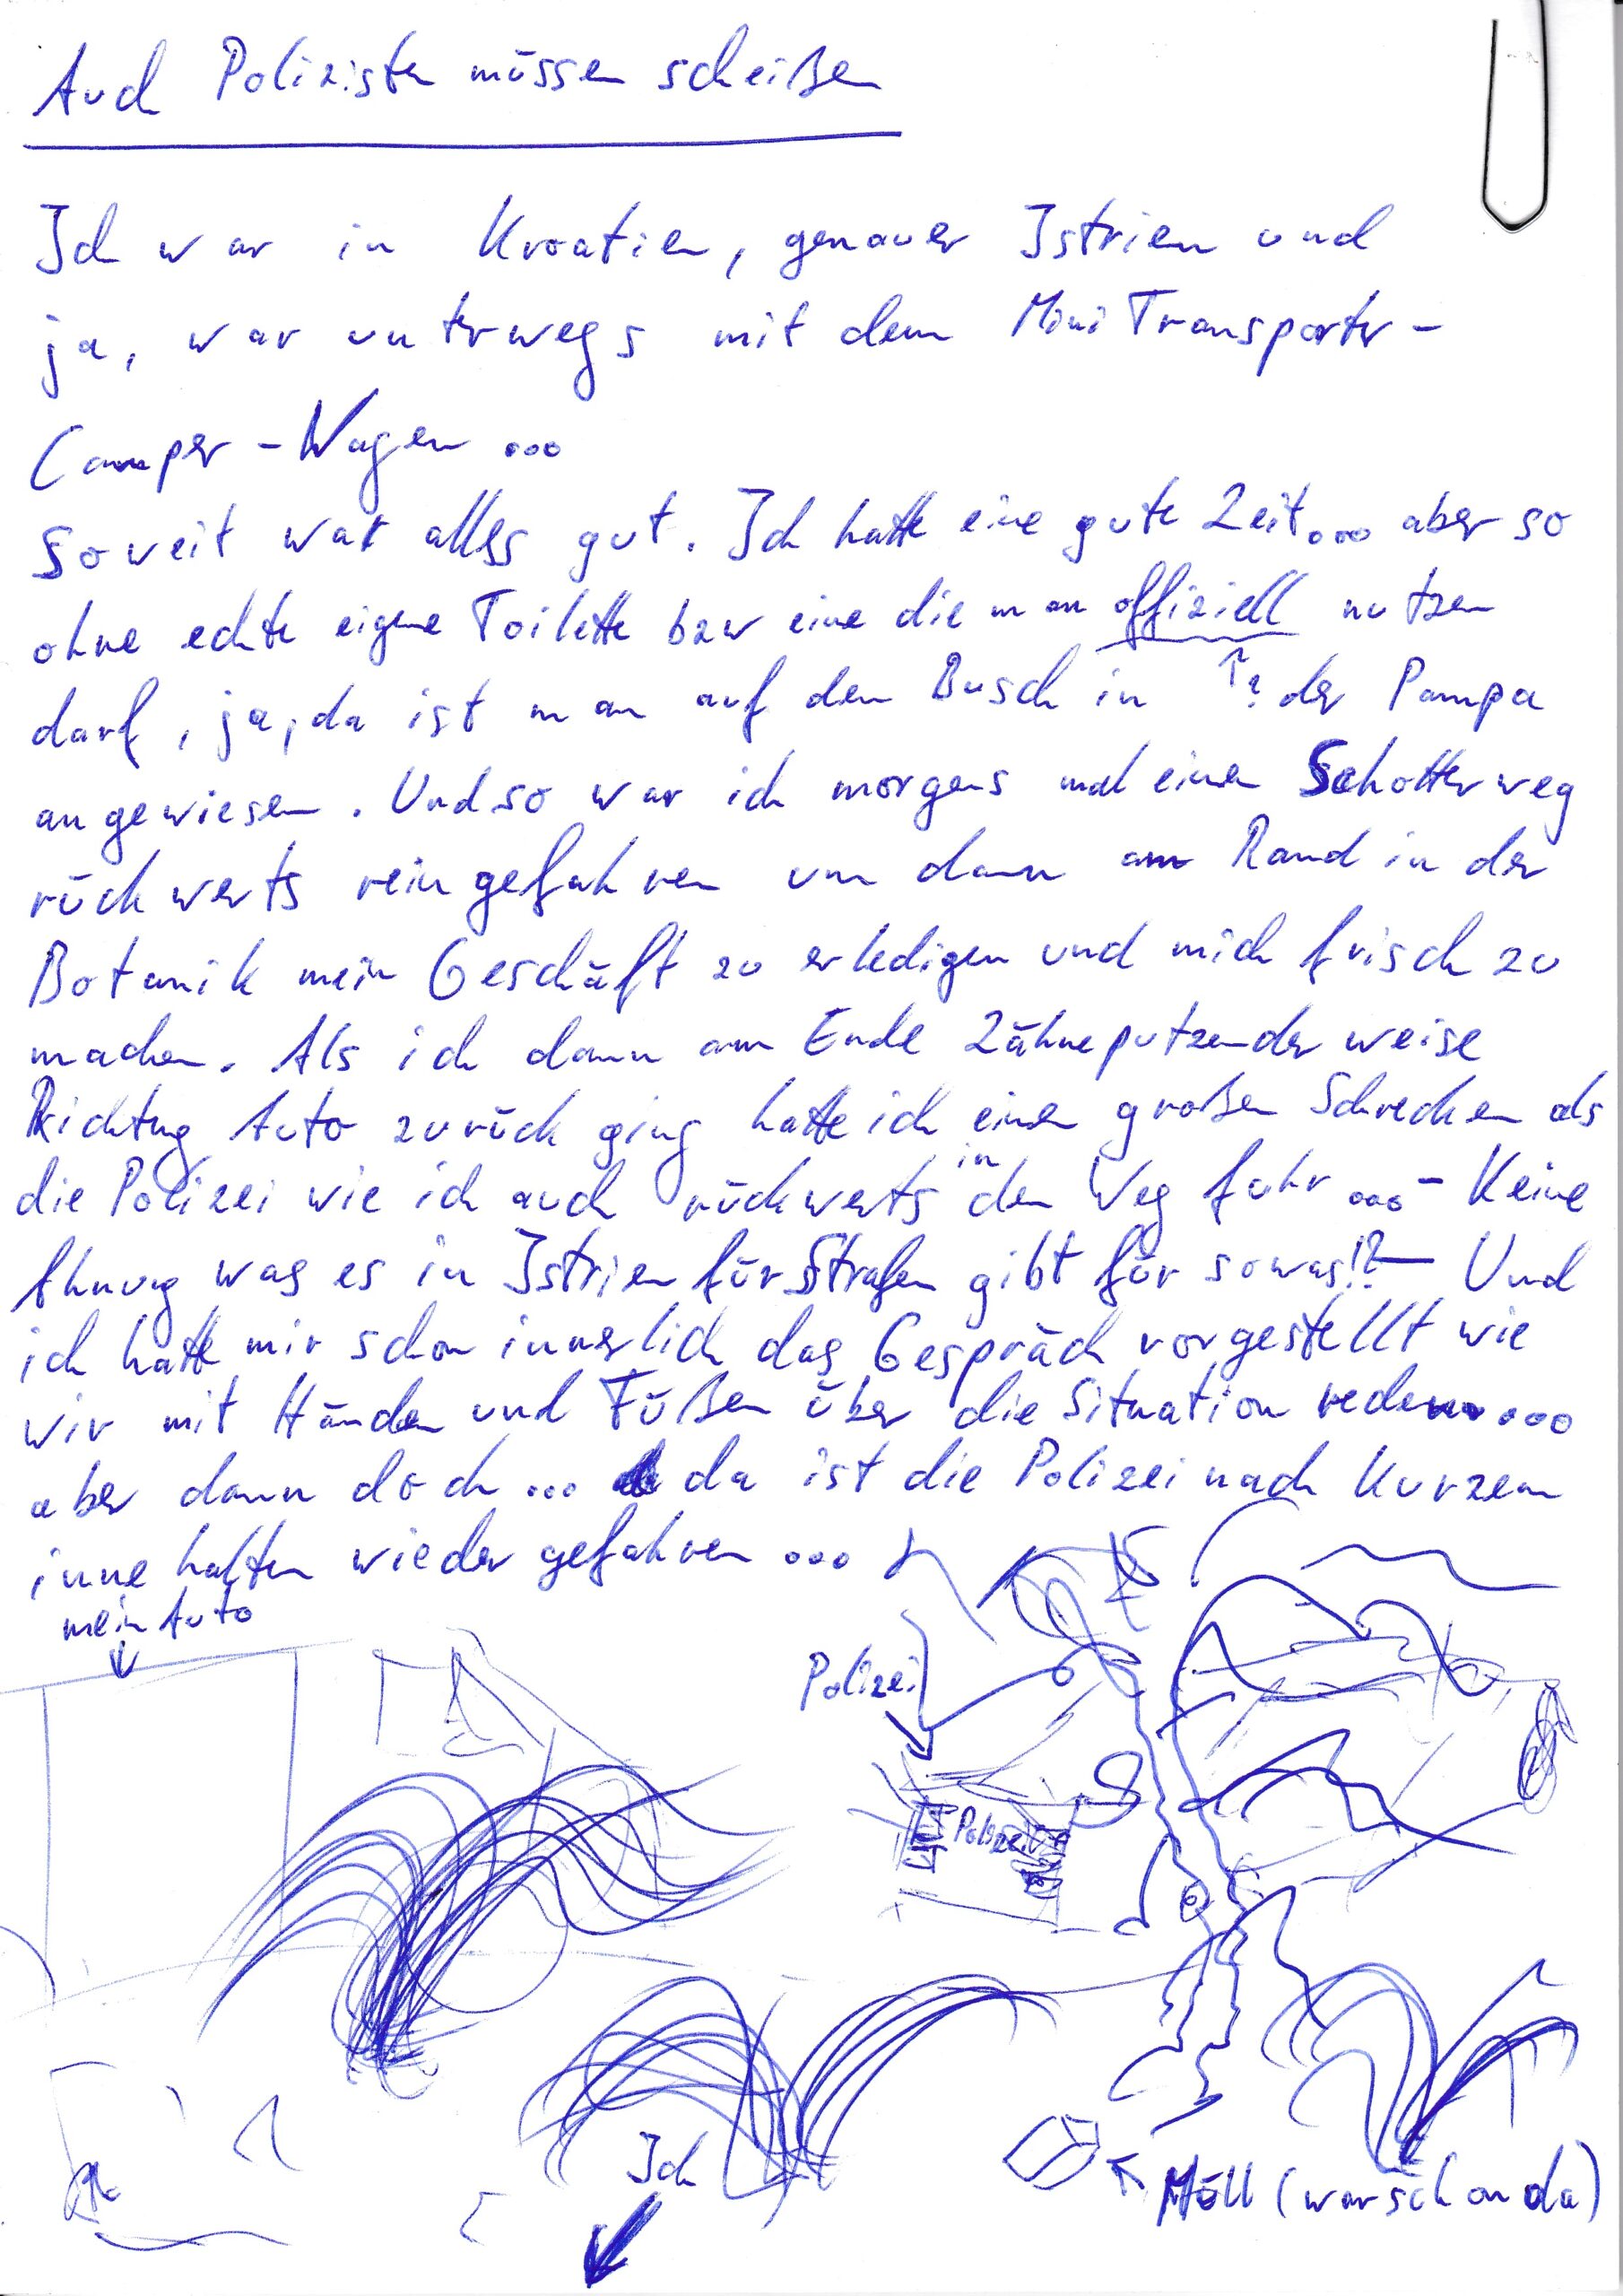 Auch Polizisten müssen scheißen
Ich war in Kroatien, genauer Istrien und
ja, war unterwegs mit dem Mini Transporter-
Camper-Wagen ...
Soweit war alles gut. Ich hatte eine gute Zeit... aber so
ohne echte eigene Toilette bzw eine die man offiziell nutzen
darf, ja, da ist man auf den Busch in ↑? der Pampa
angewiesen. Und so war ich morgens mal einen Schotterweg
rückwerts reingefahren um dann am Rand in der
Botanik mein Geschäft zu erledigen und mich frisch zu
machen. Als ich dann am Ende Zähneputzenderweise
Richtung Auto zurück ging hatte ich einen großen Schrecken als
die Polizei wie ich auch rückwerts in den Weg fuhr ...- Keine
Ahnung was es in Istrien für Strafen gibt für sowas!?- Und
ich hatte mir schon innerlich das Gespräch vorgestellt wie
wir mit Händen und Füßen über die Situation reden ...
aber dann doch ... da ist die Polizei nach kurzem
inne halten wieder gefahren ...
mein Auto
Polizei
Polizei
Ich
Müll (war schon da)